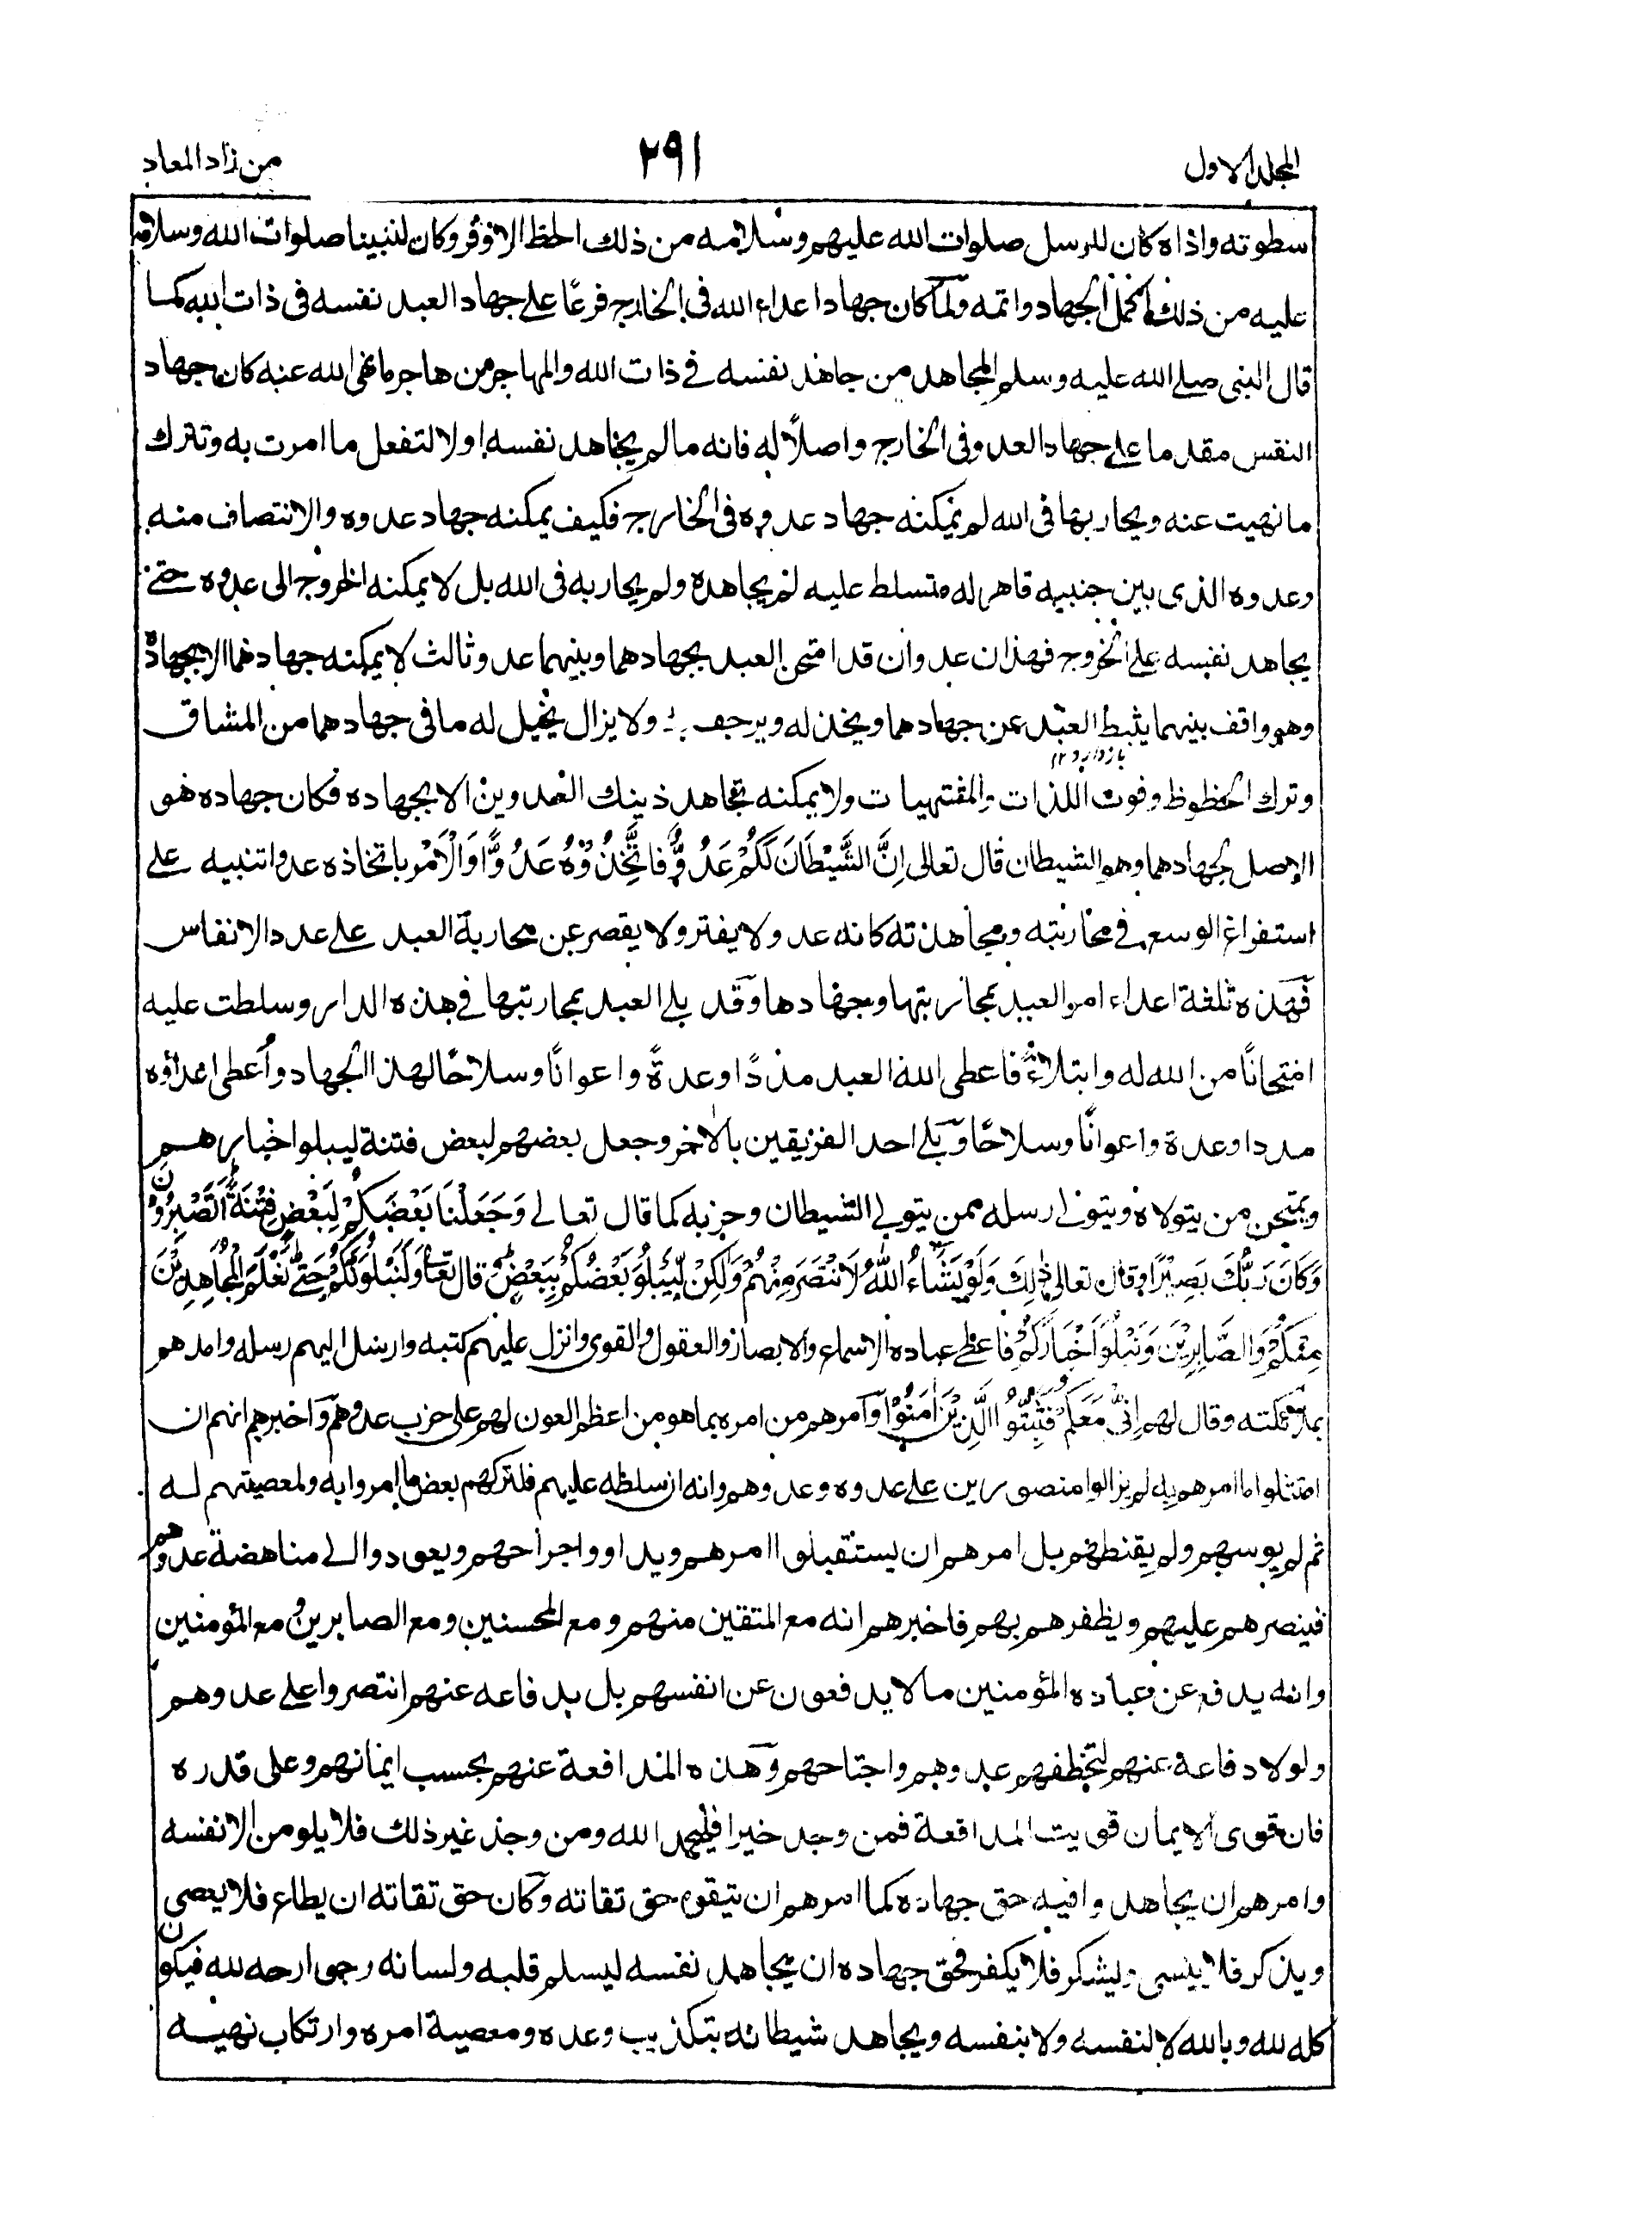 المجلد الاول
٢٩١
من زاد المعاد
سطوته واذاه كان للرسل صلوات الله عليهم وسلامه من ذلك الحظ الاوفر وكان لنبينا صلوات الله وسلامه
عليه من ذلك اكمل الجهاد واتمه ولما كان جهاد اعداء الله فى الخارج فرعًا على جهاد العبد نفسه فى ذات الله كما
قال النبى صلے الله عليه وسلم المجاهد من جاهد نفسه فے ذات الله والمهاجر من هاجر ما نهى الله عنه كان جهاد
النفس مقدما علے جهاد العدو فى الخارج واصلًا له فانه ما لم يجاهد نفسه اولا لتفعل ما امرت به وتترك
ما نهيت عنه ويحاربها فى الله لم يمكنه جهاد عدوه فى الخارج فكيف يمكنه جهاد عدوه والانتصاف منه
وعدوه الذى بين جنبيه قاهر له متسلط عليه لم يجاهده ولم يحاربه فى الله بل لا يمكنه الخروج الى عدوه حتے
يجاهد نفسه على الخروج فهذان عدوان قد امتحن العبد بجهادهما وبينهما عدو ثالث لا يمكنه جهادهما الا بجهاده
وهو واقف بينهما يثبط العبد عن جهادهما ويخذله ويرجف به ولا يزال يخيل له ما فى جهادهما من المشاق
بازدارد ١٢
وترك الحظوظ وفوت اللذات والمشتهيات ولا يمكنه يجاهد ذينك العدوين الا بجهاده فكان جهاده هو
الاصل لجهادهما وهو الشيطان قال تعالى اِنَّ الشَّيْطَانَ لَكُمْ عَدُوٌّ فَاتَّخِذُوْهُ عَدُوًّا وَالْاَمْر باتخاذه عدوا تنبيه علے
استفراغ الوسع فے محاربته ومجاهدته كانه عدو لا يفتر ولا يقصر عن محاربة العبد علے عدد الانفاس
فهذه ثلثة اعداء امر العبد بمحاربتها وجهادها وقد بلے العبد بمحاربتها فے هذه الدار وسلطت عليه
امتحانًا من الله له وابتلاءً فاعطى الله العبد مددًا وعدةً واعوانًا وسلاحًا لهذا الجهاد واعطى اعداؤه
مددا وعدة واعوانًا وسلاحًا وبلے احد الفريقين بالآخر وجعل بعضهم لبعض فتنة ليبلو اخبارهم
ويمتحن من يتولاه ويتولى رسله ممن يتولے الشيطان وحزبه كما قال تعالے وَجَعَلْنَا بَعْضَكُمْ لِبَعْضٍ فِتْنَةً اَتَصْبِرُوْنَ
وَكَانَ رَبُّكَ بَصِيْرًا وقال تعالى ذٰلِكَ وَلَوْ يَشَاءُ اللّٰهُ لَانْتَصَرَ مِنْهُمْ وَلٰكِنْ لِّيَبْلُوَ بَعْضَكُمْ بِبَعْضٍ قال تعا وَلَنَبْلُوَنَّكُمْ حَتّٰى نَعْلَمَ الْمُجَاهِدِيْنَ
مِنْكُمْ وَالصَّابِرِيْنَ وَنَبْلُوَ اَخْبَارَكُمْ فاعطى عباده الاسماع والابصار والعقول والقوى وانزل عليهم كتبه وارسل اليهم رسله وامدهم
بملئكته وقال لهم اِنِّىْ مَعَكُمْ فَثَبِّتُوا الَّذِيْنَ اٰمَنُوْا وآمرهم من امره بما هو من اعظم العون لهم على حزب عدوهم واخبرهم انهم ان
امتثلوا ما امرهم به لم يزالوا منصورين علے عدوه وعدوهم وانه ان سلطه عليهم فلتركهم بعض ما امروا به ولمعصيتهم له
ثم لم يوسهم ولم يقنطهم بل امرهم ان يستقبلوا امرهم ويداووا جراحهم ويعودوا الے مناهضة عدوهم
فينصرهم عليهم ويظفرهم بهم فاخبرهم انه مع المتقين منهم ومع المحسنين ومع الصابرين ومع المؤمنين
وانه يدفع عن عباده المؤمنين ما لا يدفعون عن انفسهم بل بدفاعه عنهم انتصروا علے عدوهم
ولولا دفاعه عنهم لتخطفهم عدوهم واجتاحهم وهذه المدافعة عنهم بحسب ايمانهم وعلى قدره
فان قوى الايمان قويت المدافعة فمن وجد خيرا فليحمد الله ومن وجد غير ذلك فلا يلومن الا نفسه
وامرهم ان يجاهدوا فيه حق جهاده كما امرهم ان يتقوه حق تقاته وكان حق تقاته ان يطاع فلا يعصى
ويذكر فلا ينسى ويشكر فلا يكفر فحق جهاده ان يجاهد نفسه ليسلم قلبه ولسانه وجوارحه لله فيكون
كله لله وبالله لا لنفسه ولا بنفسه ويجاهد شيطانه بتكذيب وعده ومعصية امره وارتكاب نهيه